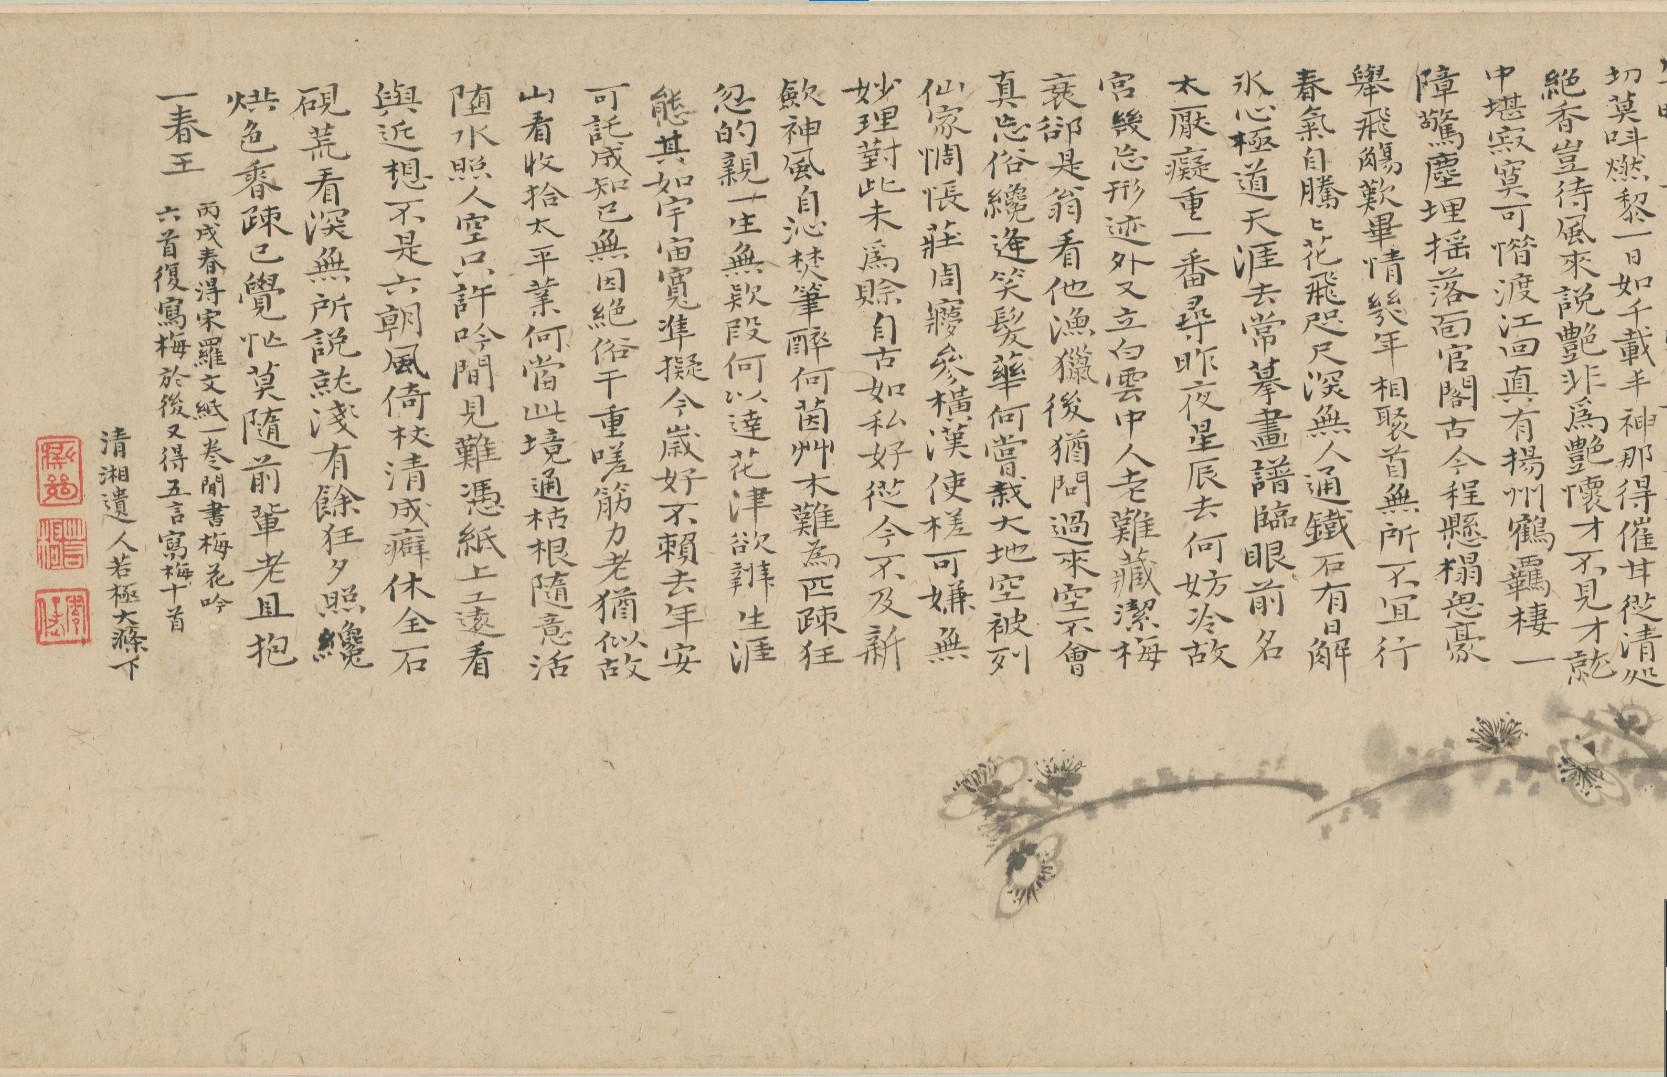 切莫呌燃黎一日如千載羊神那得催甘從清処
絕香豈待風來說艷非爲艷懷才不見才就
中堪寂寞可憯渡江回真有揚州鶴羈棲一
障驚塵埋揺落面官閣古今程懸榻思豪
舉飛觴歎畢情幾年相聚首無所不宜行
春氣自騰〻花飛咫尺深無人通鐵石有日解
氷心極道天涯去常摹畫譜臨眼前名
太厭癡重一番尋昨夜星辰去何妨冷故
宮幾忘形迹外又立白雲中人老難藏潔梅
衰卻是翁看他漁獵後猶問過來空不會
真忘俗纔逢笑髮華何當栽大地空被列
仙家惆悵莊周寢參橫漢使槎可嫌無
妙理對此未爲賒自古如私好從今不及新
歒神風自沁焚筆醉何茵艸木難為匹疎狂
忽的親一生無欵段何以達花津欲辨生涯
態其如宇宙寬準擬今歲好不賴去年安
可託成知已無因絕俗干重嗟筋力老猶似故
山看收拾太平業何當此境通枯根隨意活
墮水照人空只許吟間見難憑紙上工遠看
與近想不是六朝風倚杖清成癖休全石
硯荒看深無所説就淺有餘狂夕照纔
烘色香疎已覺忙莫隨前輩老且抱
一春王
丙戌春得宋羅文紙一卷閒書梅花吟
六首復寫梅於後又得五言寫梅十首
清湘遺人若極大滌下